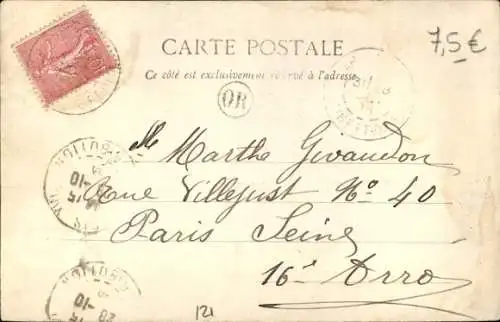 CARTE POSTALE
7,5 €
Ce côté est exclusivement réservé à l'adresse
OR
Mlle Marthe Givaudon
Rue Villejust No 40
Paris Seine
16e Arro
121